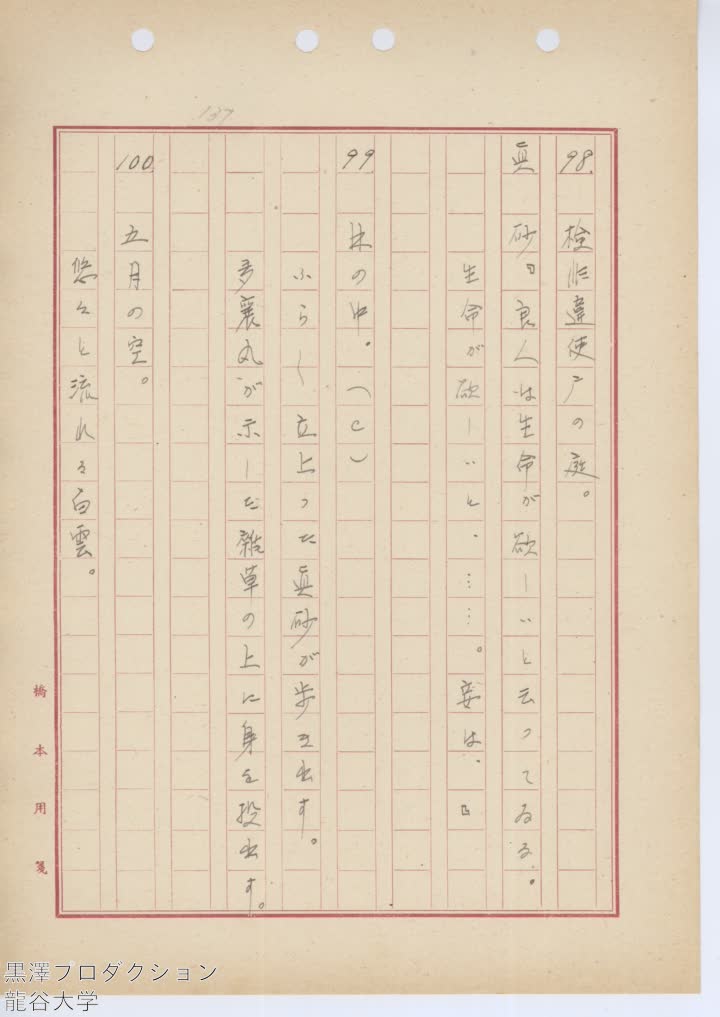 137
98. 検非違使庁の庭。
眞砂『良人は生命が欲しいと云つてゐる。
生命が欲しいと、……。妾は、』
99. 林の中。(C)
ふら〱立上つた眞砂が歩き出す。
多襄丸が示した雑草の上に身を投出す。
100. 五月の空。
悠々と流れる白雲。
橋本用箋
黒澤プロダクション
龍谷大学